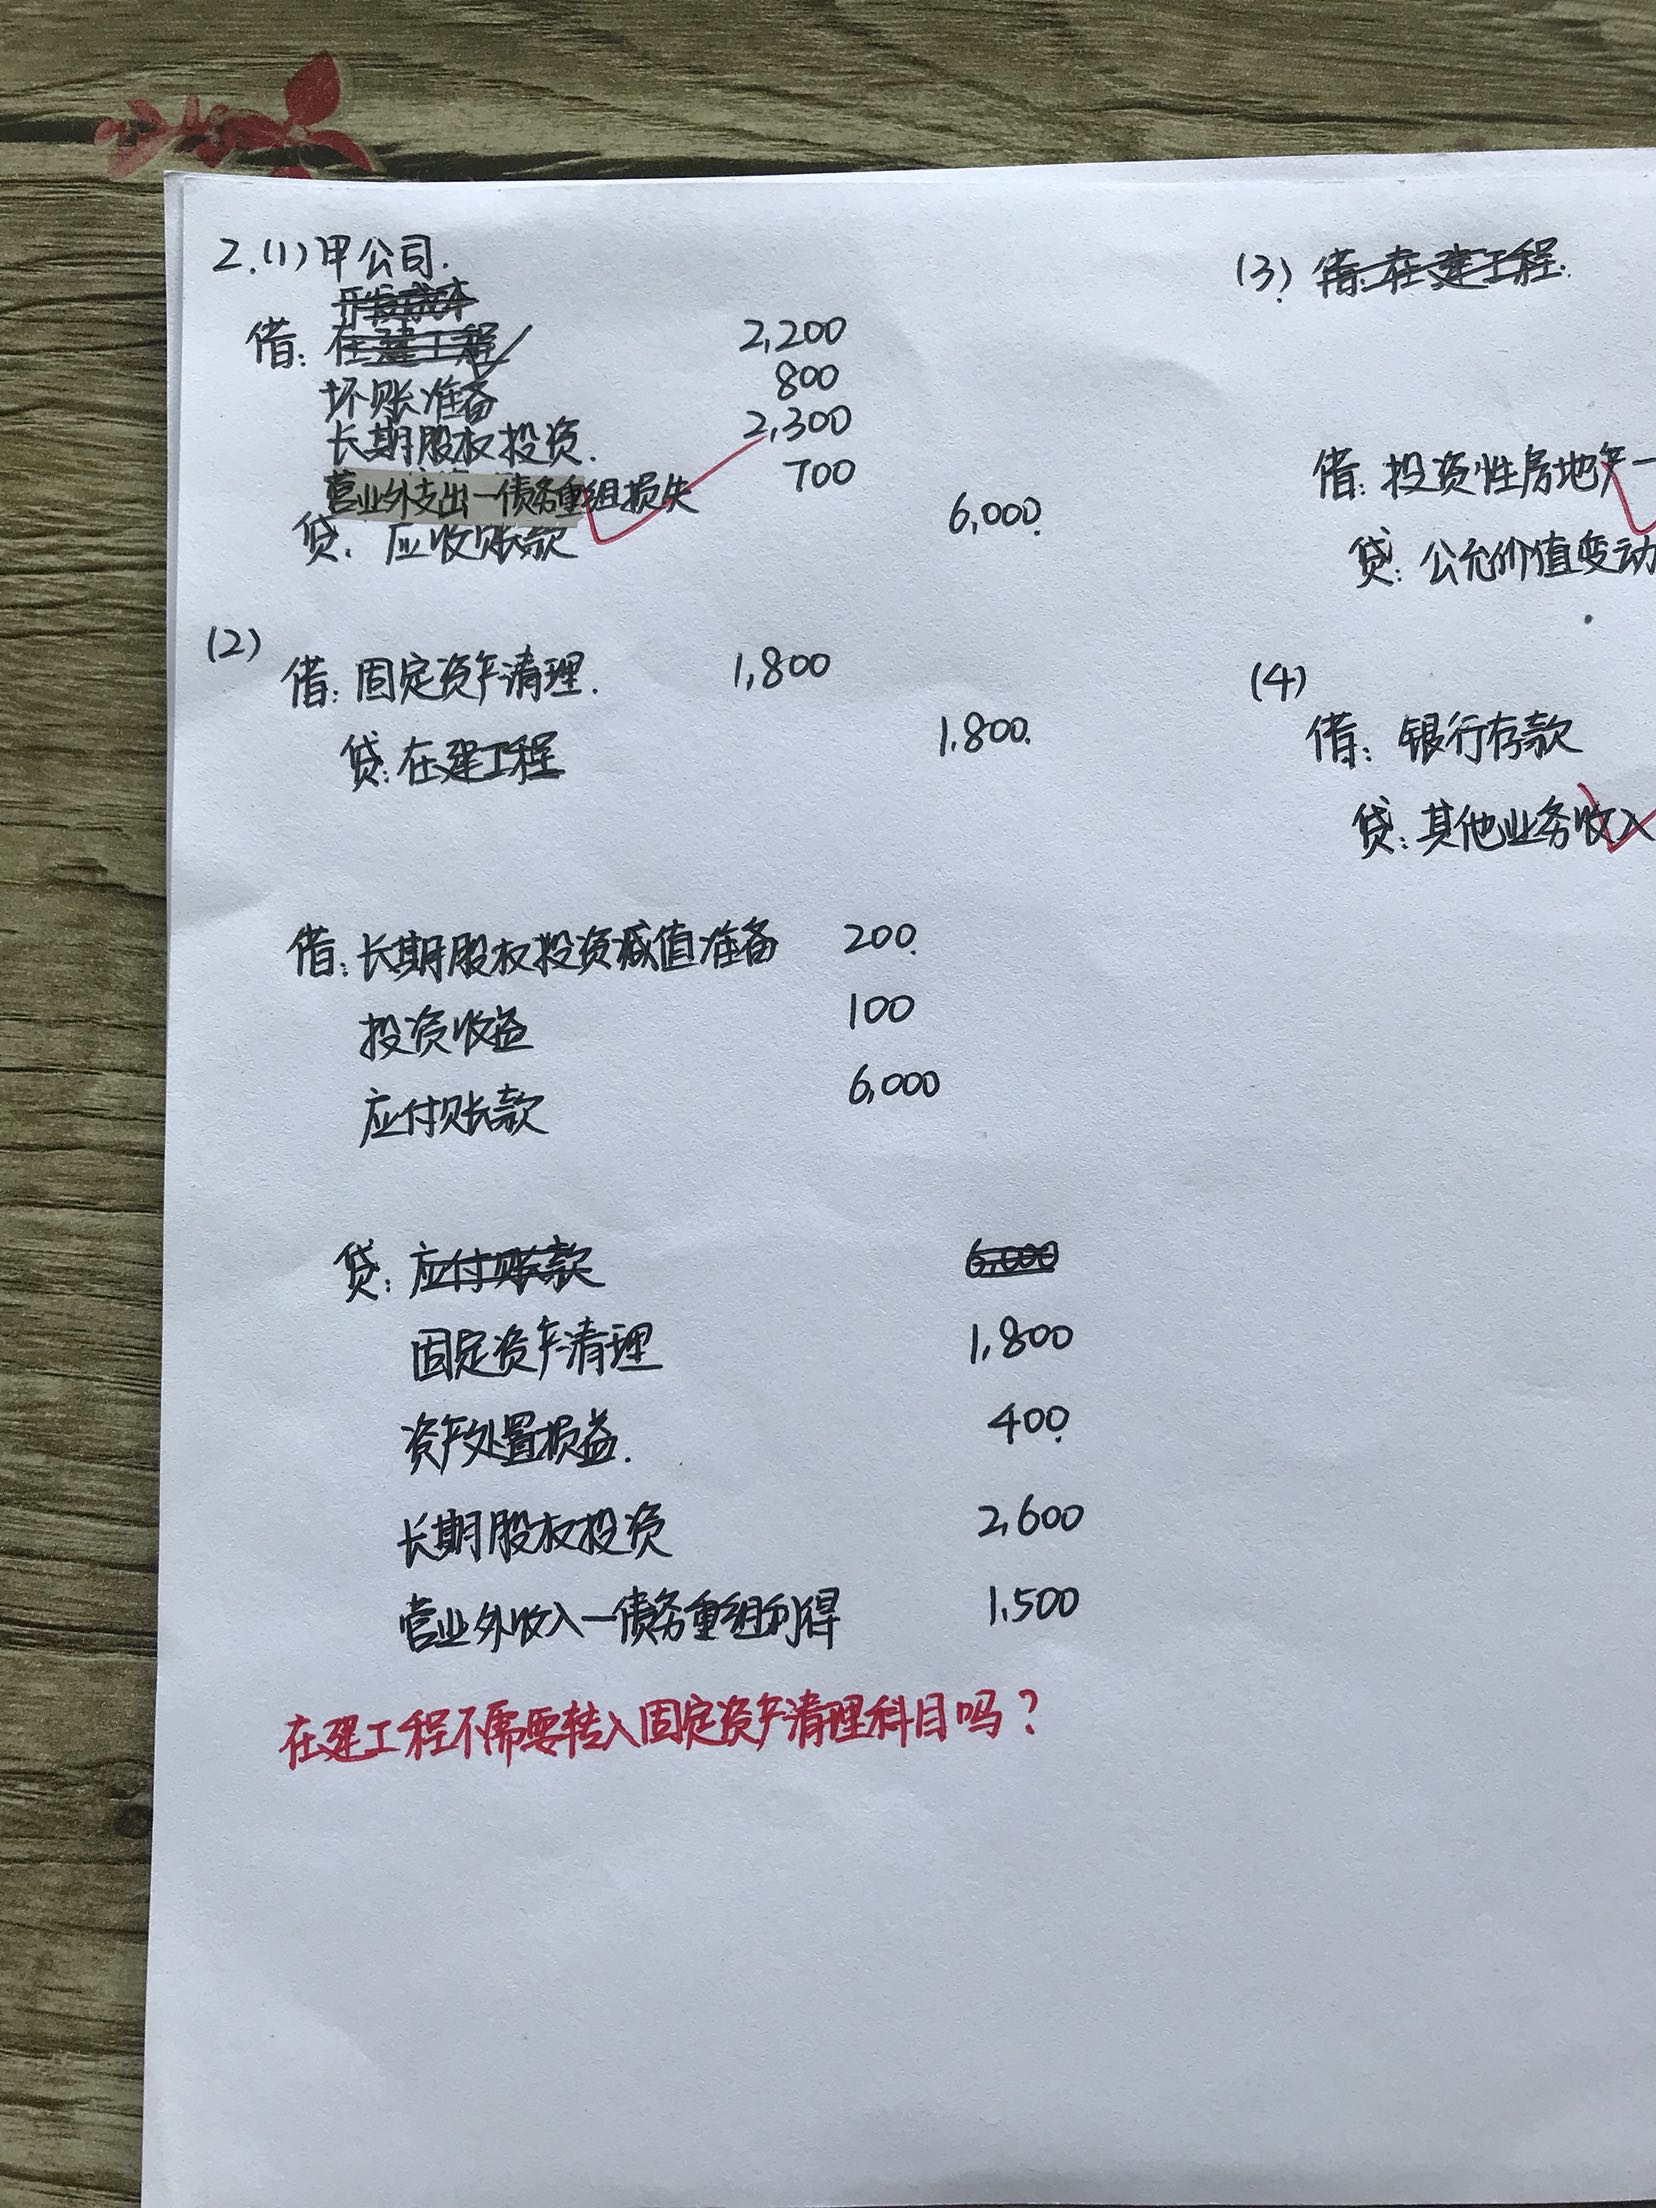 2.(1)甲公司.
开发成本
借:在建工程 2,200
坏账准备 800
长期股权投资. 2,300
营业外支出—债务重组损失 700
贷:应收账款 6,000.
(2)
借:固定资产清理. 1,800
贷:在建工程 1,800.
借:长期股权投资减值准备 200.
投资收益 100
应付账款 6,000
贷:应付账款 6,000
固定资产清理 1,800
资产处置损益. 400.
长期股权投资 2,600
营业外收入—债务重组利得 1,500
在建工程不需要转入固定资产清理科目吗?
(3) 借:在建工程.
借:投资性房地产—
贷:公允价值变动
(4)
借:银行存款
贷:其他业务收入